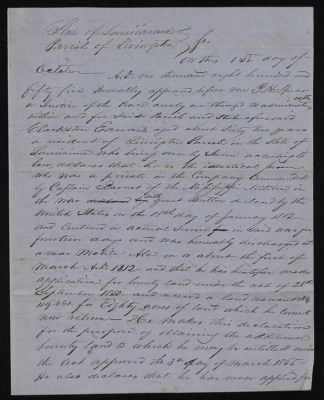 State of Louisiana
Parish of Livingston
On this 1st day of
October A.D. one thousand eight hundred and
fifty five Personally appeared before me
a Justice of the Peace duly authorized to administer oaths
within and for said Parish and State aforesaid
Edwards aged about Sixty two years
a resident of Livingston Parish in the State of
Louisiana who being duly Sworn according to
law, declares that he is the identical person
who was a private in the Company Commanded
by Captain of the Militia in
the war with Great Britain declared by the
United States on the day of January 1812
and Continued in actual Service in Said war for
fourteen days and was honorably discharged at
near Mobile Ala on or about the first of
March A.D. 1812 and that he has heretofore made
application for bounty land under the act of 28th
September 1850 and received a land warrant No
for Eighty acres of land which he cannot
now return. He makes this declaration
for the purpose of obtaining the additional
bounty land to which he may be entitled under
the act approved the 3rd day of March 1855
He also declares that he has never applied for